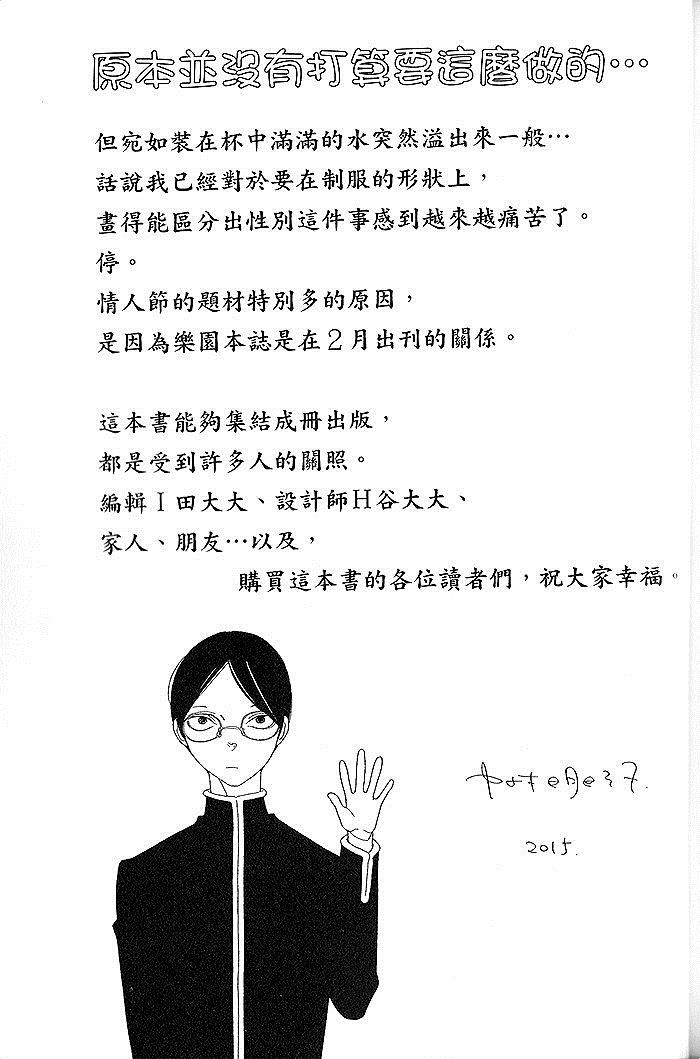 原本並沒有打算要這麼做的⋯
但宛如裝在杯中滿滿的水突然溢出來一般⋯
話說我已經對於要在制服的形狀上，
畫得能區分出性別這件事感到越來越痛苦了。
停。
情人節的題材特別多的原因，
是因為樂園本誌是在２月出刊的關係。
這本書能夠集結成冊出版，
都是受到許多人的關照。
編輯Ｉ田大大、設計師Ｈ谷大大、
家人、朋友⋯以及，
購買這本書的各位讀者們，祝大家幸福。
2015.